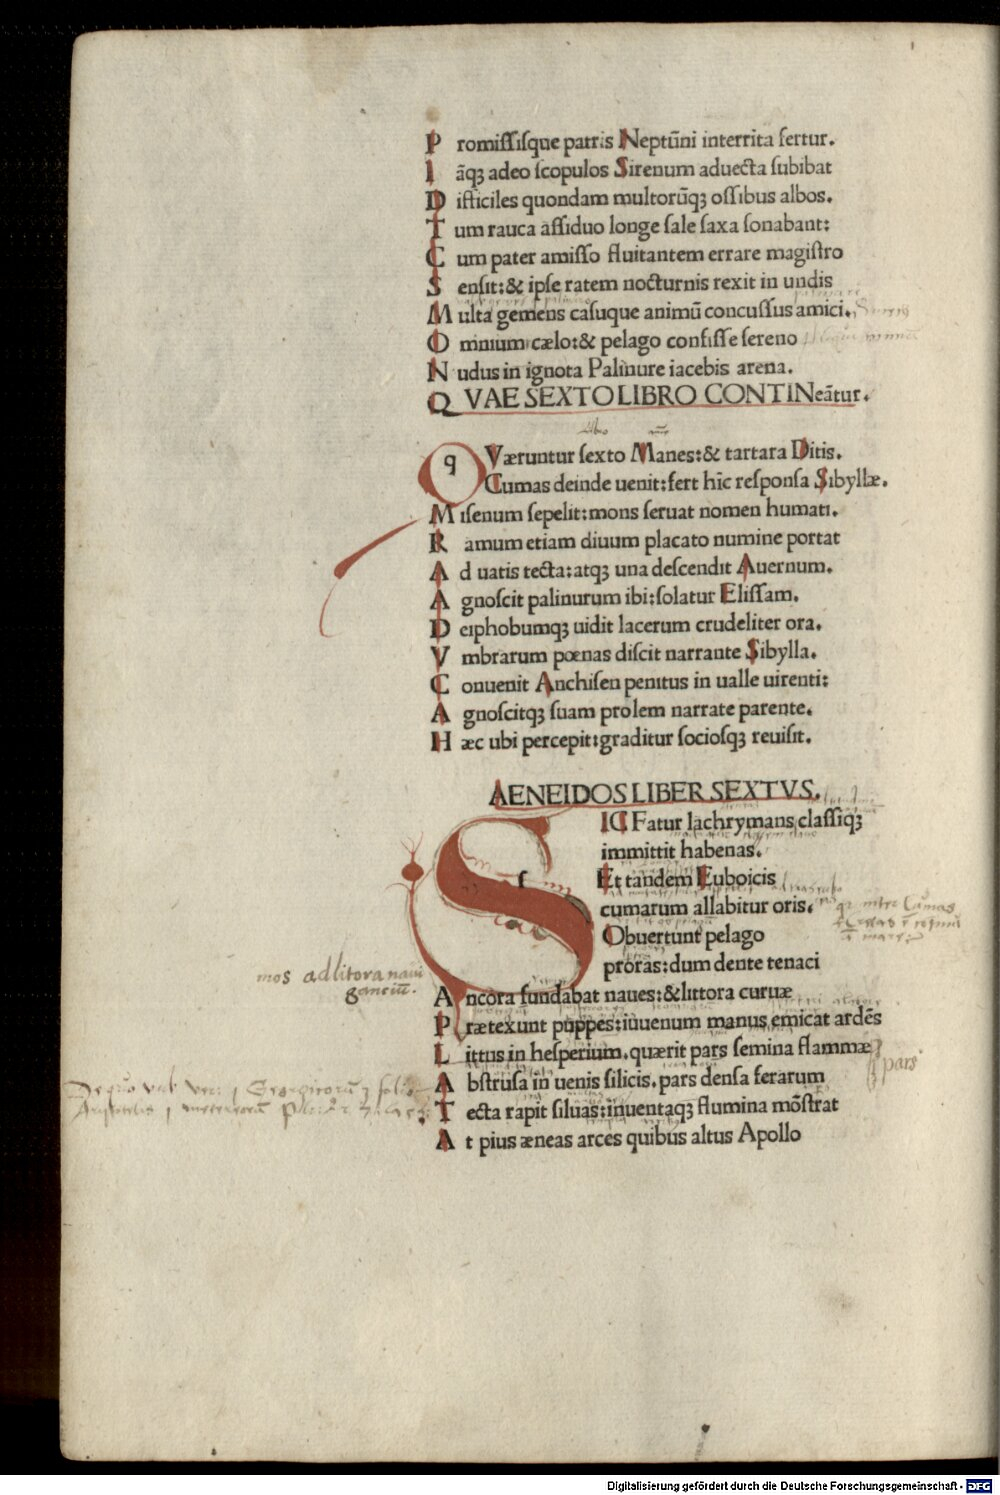 P romiſſiſque patris Neptūni interrita fertur.
I āq; adeo ſcopulos Sirenum aduecta ſubibat
D ifficiles quondam multorūq; oſſibus albos.
T um rauca aſſiduo longe ſale ſaxa ſonabant:
C um pater amiſſo fluitantem errare magiſtro
S enſit: & ipſe ratem nocturnis rexit in undis
M ulta gemens caſuque animū concuſſus amici.
O mnium cælo: & pelago confiſſe ſereno
N udus in ignota Palinure iacebis arena.
Q VAE SEXTO LIBRO CONTINeātur.
q Væruntur ſexto Manes: & tartara Ditis.
Cumas deinde uenit: fert hīc reſponſa Sibyllæ.
M iſenum ſepelit: mons ſeruat nomen humati.
R amum etiam diuum placato numine portat
A d uatis tecta: atq; una deſcendit Auernum.
A gnoſcit palinurum ibi: ſolatur Eliſſam.
D eiphobumq; uidit lacerum crudeliter ora.
V mbrarum pœnas diſcit narrante Sibylla.
C onuenit Anchiſen penitus in ualle uirenti:
A gnoſcitq; ſuam prolem narrate parente.
H æc ubi percepit: graditur ſocioſq; reuiſit.
AENEIDOS LIBER SEXTVS.
S IC Fatur lachrymans claſſiq;
immittit habenas.
Et tandem Euboicis
cumarum allabitur oris.
Obuertunt pelago
proras: dum dente tenaci
mos ad litora navi
gantiū.
A ncora fundabat naues: & littora curuæ
P rætexunt puppes: iuuenum manus emicat ardēs
L ittus in heſperium. quærit pars ſemina flammæ
pars
A bſtruſa in uenis ſilicis. pars denſa ferarum
T ecta rapit ſiluas: inuentaq; flumina mōſtrat
A t pius æneas arces quibus altus Apollo
Digitalisierung gefördert durch die Deutsche Forschungsgemeinschaft - DFG